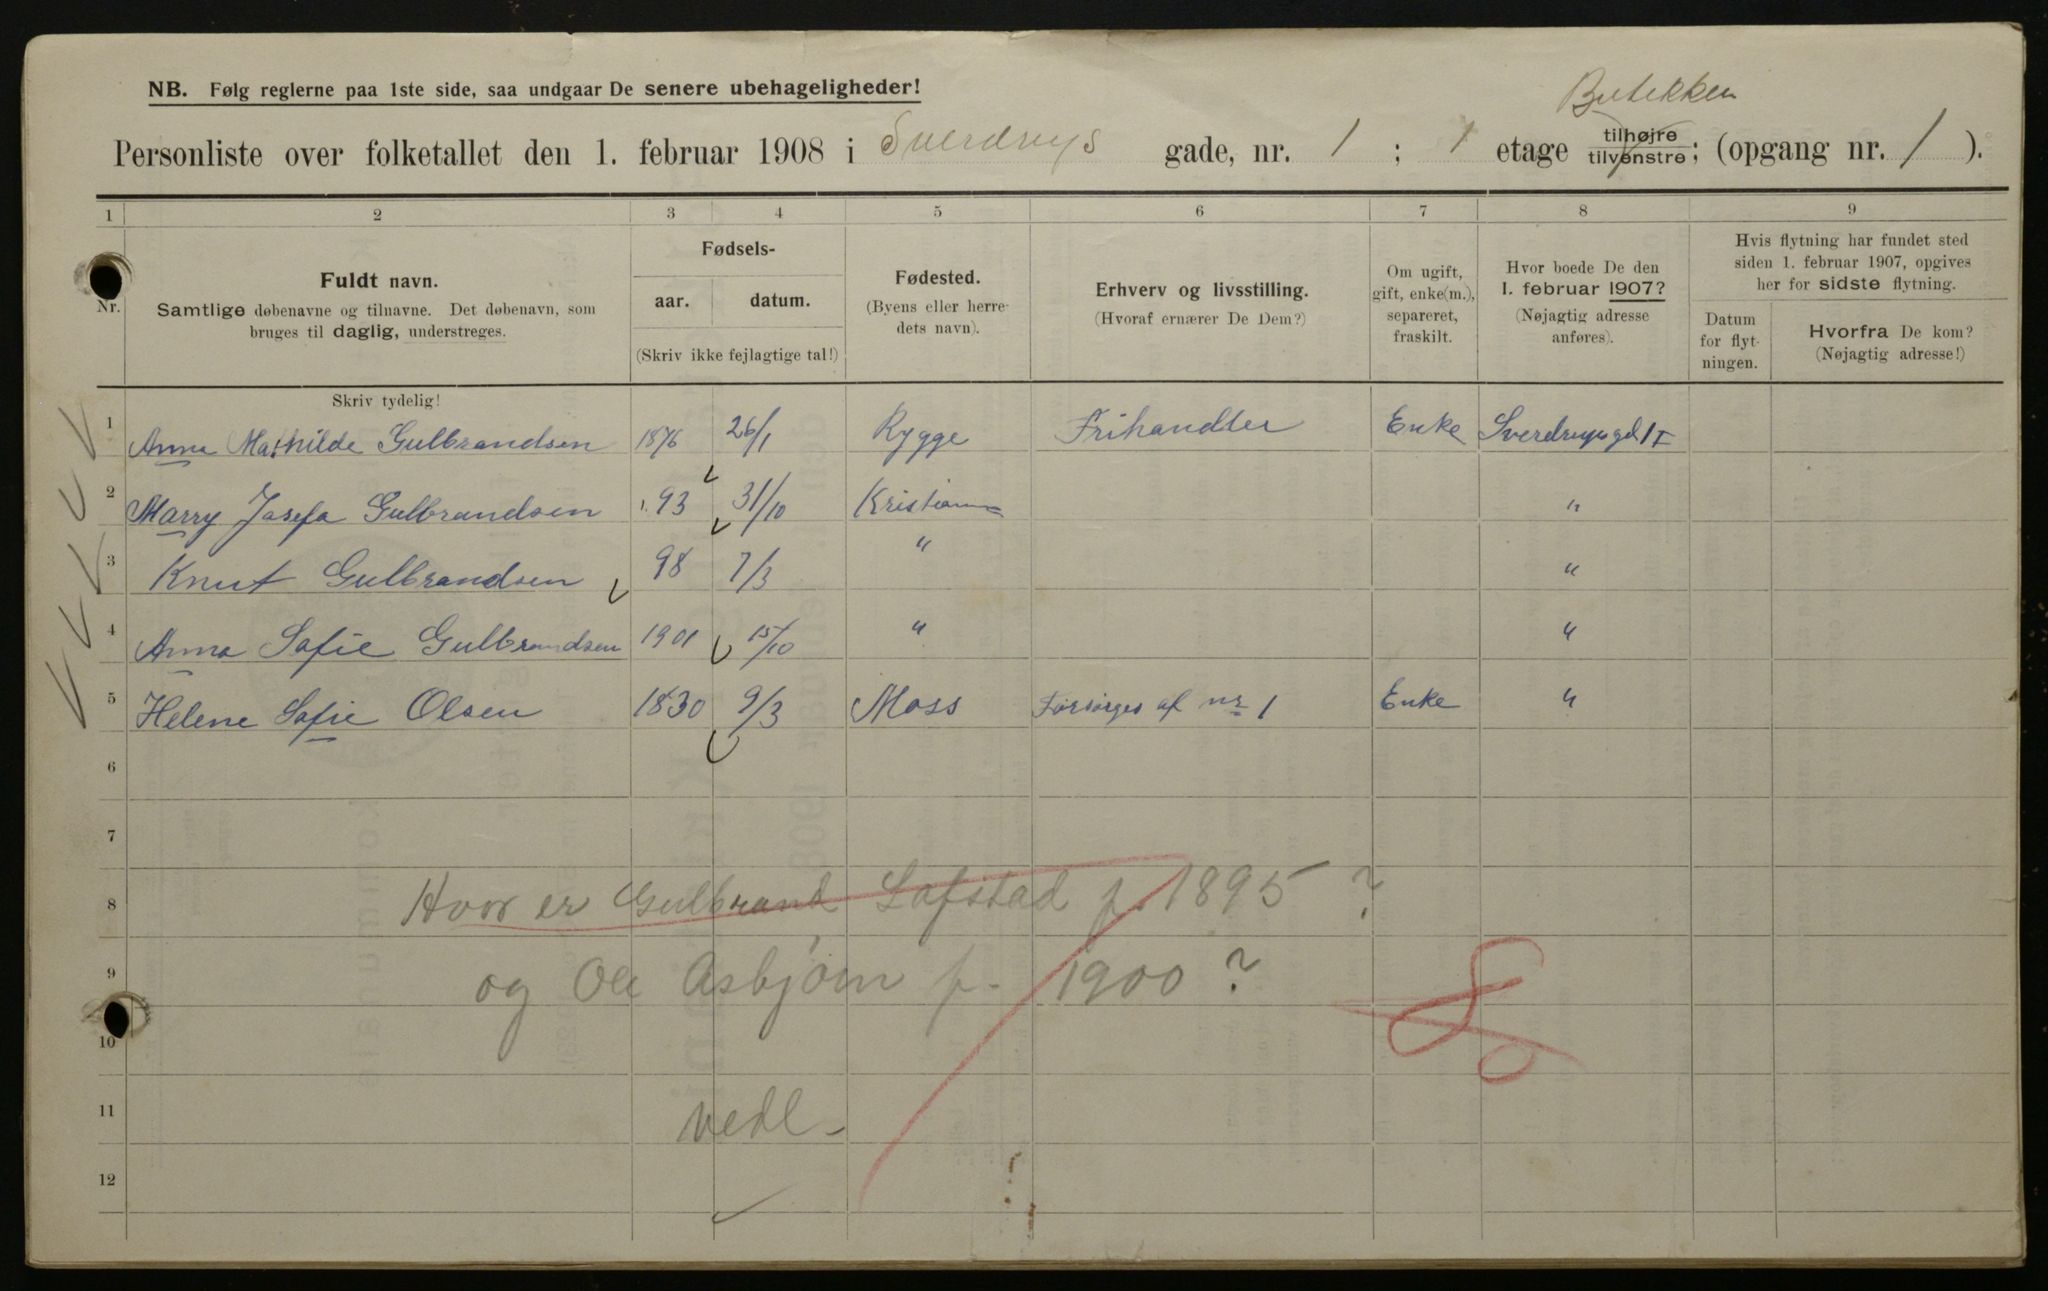 NB. Følg reglerne paa 1ste side, saa undgaar De senere ubehageligheder!
Butikken
Personliste over folketallet den 1. februar 1908 i Sverdrups gade, nr. 1 ; 1 etage tilhøjre tilvenstre; (opgang nr. 1 ).
1 2 3 4 5 6 7 8 9
Nr.
Fuldt navn.
Samtlige døbenavne og tilnavne. Det døbenavn, som
bruges til daglig, understreges.
Fødsels-
aar. datum.
(Skriv ikke fejlagtige tal!)
Fødested.
(Byens eller herre-
dets navn).
Erhverv og livsstilling.
(Hvoraf ernærer De Dem?)
Om ugift,
gift, enke(m.),
separeret,
fraskilt.
Hvor boede De den
1. februar 1907?
(Nøjagtig adresse
anføres).
Hvis flytning har fundet sted
siden 1. februar 1907, opgives
her for sidste flytning.
Datum
for flyt-
ningen.
Hvorfra De kom?
(Nøjagtig adresse!)
Skriv tydelig!
1 Anna Mathilde Gulbrandsen 1876 26/1 Rygge Frihandler Enke Sverdrupsgd 1 I
2 Marry Josefa Gulbrandsen 93 31/10 Kristiania "
3 Knut Gulbrandsen 98 7/3 " "
4 Anna Sofie Gulbrandsen 1901 15/10 " "
5 Helene Sofie Olsen 1830 9/3 Moss Forsørges af nr 1 Enke "
6
7
8 Hvor er Gulbrand Lofstad f. 1895 ?
9 og Ole Asbjörn f. 1900 ?
10
11 vedl.
12